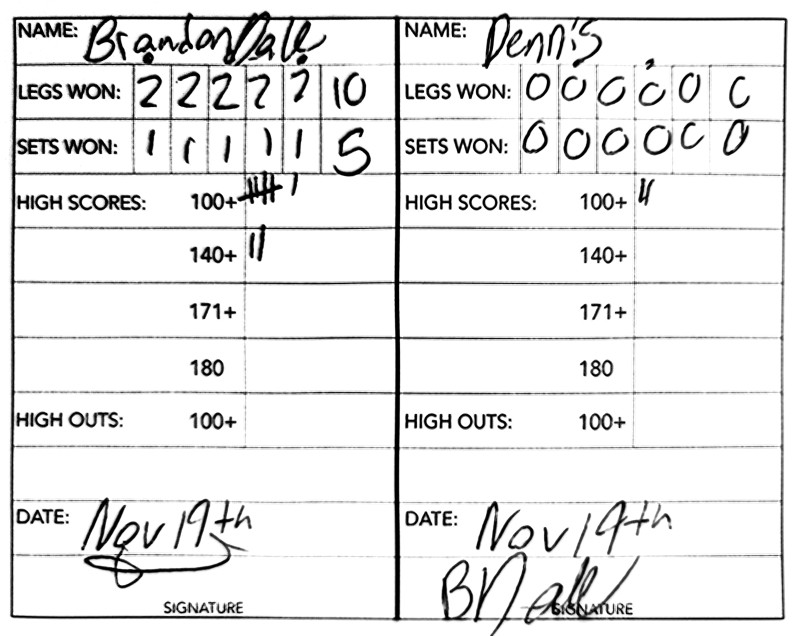 NAME: Brandon Dale
LEGS WON: 2 2 2 2 2 10
SETS WON: 1 1 1 1 1 5
HIGH SCORES: 100+
140+
171+
180
HIGH OUTS: 100+
DATE: Nov 19th
SIGNATURE
NAME: Dennis
LEGS WON: 0 0 0 0 0 0
SETS WON: 0 0 0 0 0 0
HIGH SCORES: 100+
140+
171+
180
HIGH OUTS: 100+
DATE: Nov 19th
SIGNATURE